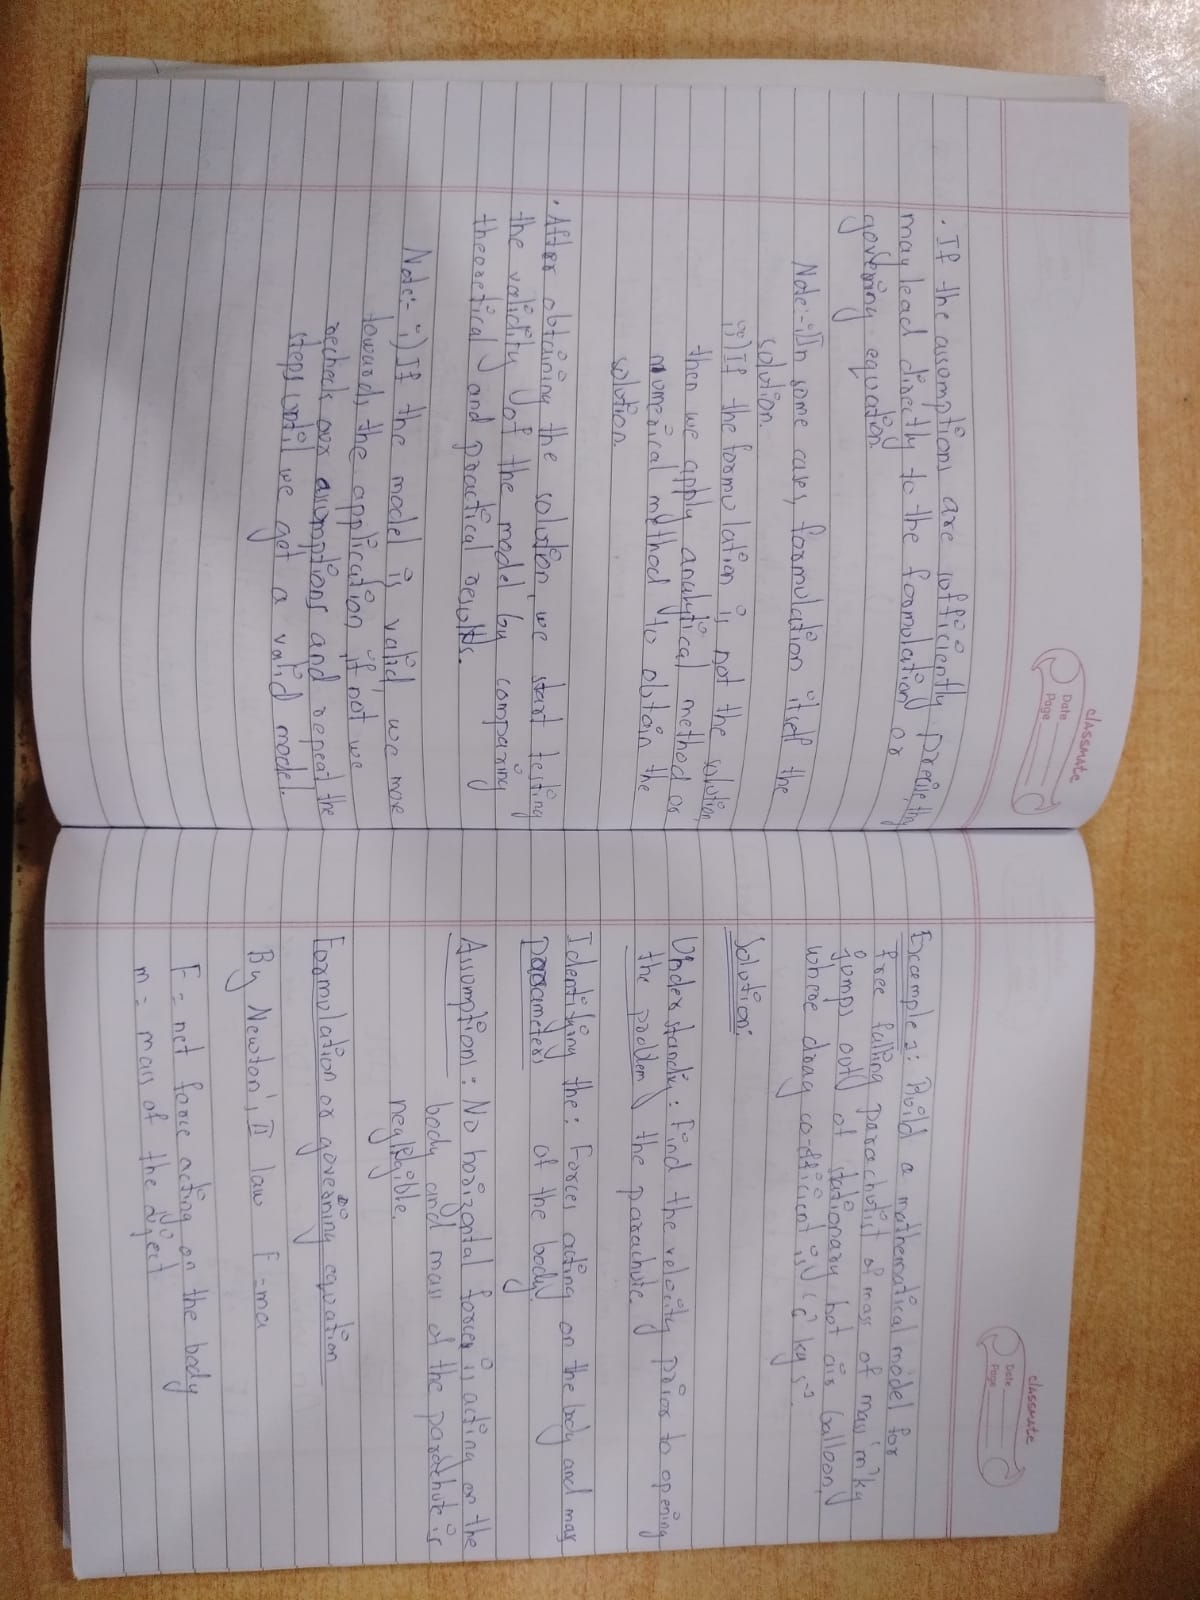 classmate
Date
Page
. If the assumptions are sufficiently precise, they
may lead directly to the formulation or
governing equation.
Note:- i) In some cases, formulation itself the
solution.
ii) If the formulation is not the solution,
then we apply analytical method or
numerical method to obtain the
solution.
. After obtaining the solution, we start testing
the validity of the model by comparing
theoretical and practical results.
Note:- i) If the model is valid, we move
towards the application, if not we
recheck our assumptions and repeat the
steps until we get a valid model.
classmate
Date
Page
Example 2: Build a mathematical model for
free falling parachutist of mass of mass 'm' kg
jumps out of stationary hot air balloon,
where drag co-efficient is 'c' kg s⁻¹.
Solution:
Understanding : Find the velocity prior to opening
the problem the parachute.
Identifying the : Forces acting on the body and mass
parameters of the body.
Assumptions : No horizontal forces is acting on the
body and mass of the parachute is
negligible.
Formulation or governing equation
By Newton's II law F = ma
F = net force acting on the body
m = mass of the object